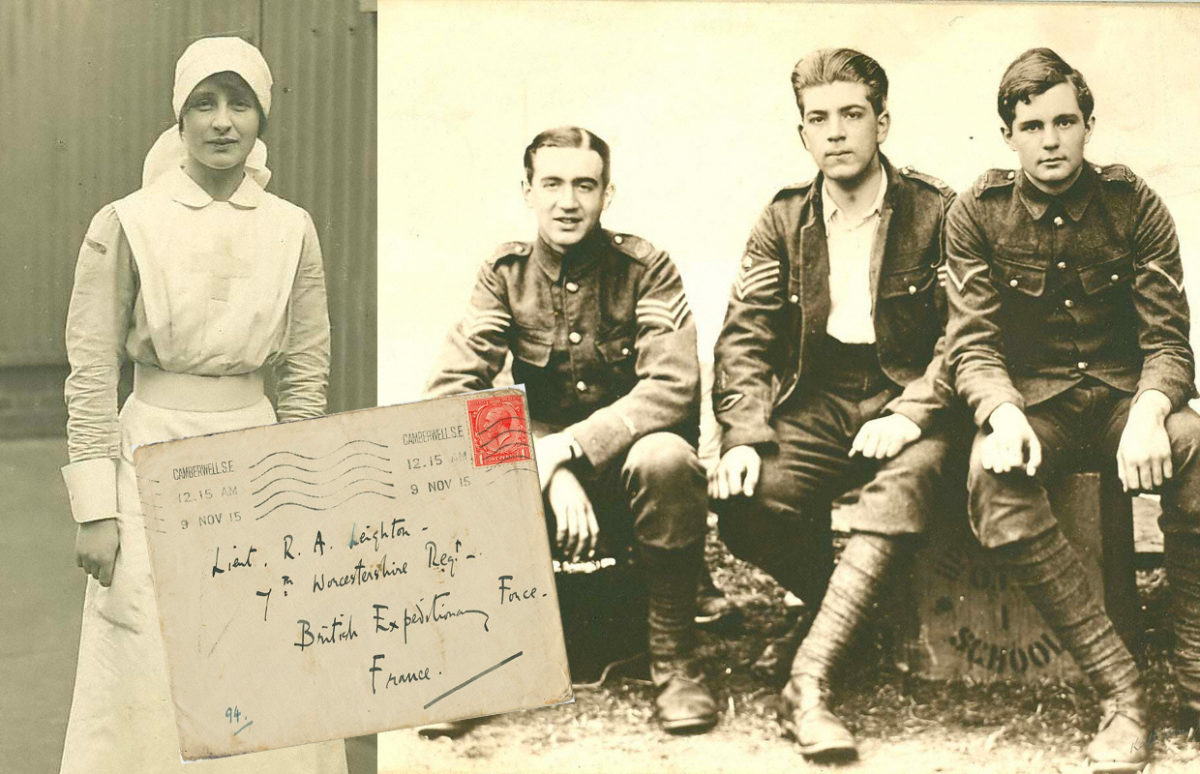 CAMBERWELL.S.E
12.15 AM
9 NOV 15
CAMBERWELL.S.E
12.15 AM
9 NOV 15
Lieut. R. A. Leighton -
7th Worcestershire Regt -
British Expeditionary Force.
France.
94.
SCHOOL